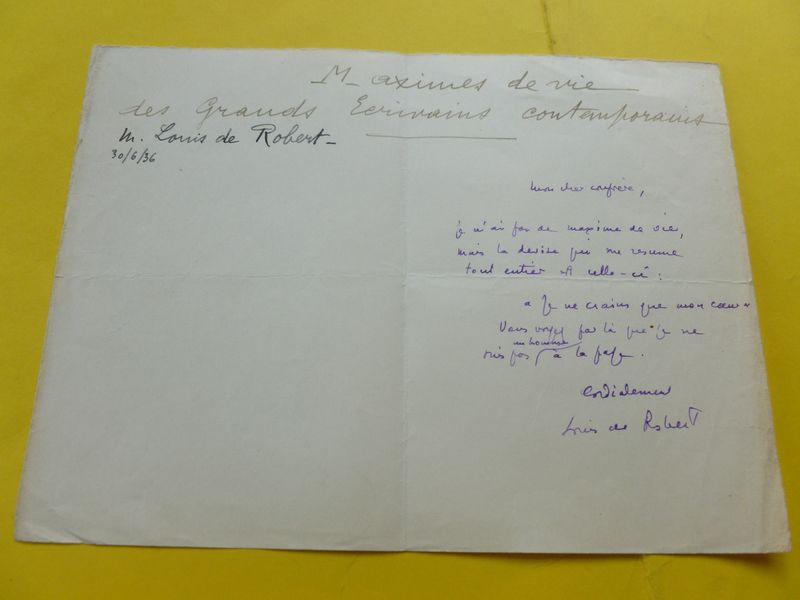 Maximes de vie
des Grands Ecrivains contemporains
M. Louis de Robert_
30/6/36
mon cher confrère,
je n'ai pas de maxime de vie,
mais la devise qui me résume
tout entier est celle-ci :
« Je ne crains que mon cœur »
Vous voyez par là que je ne
suis pas un homme à la page.
Cordialement
Louis de Robert